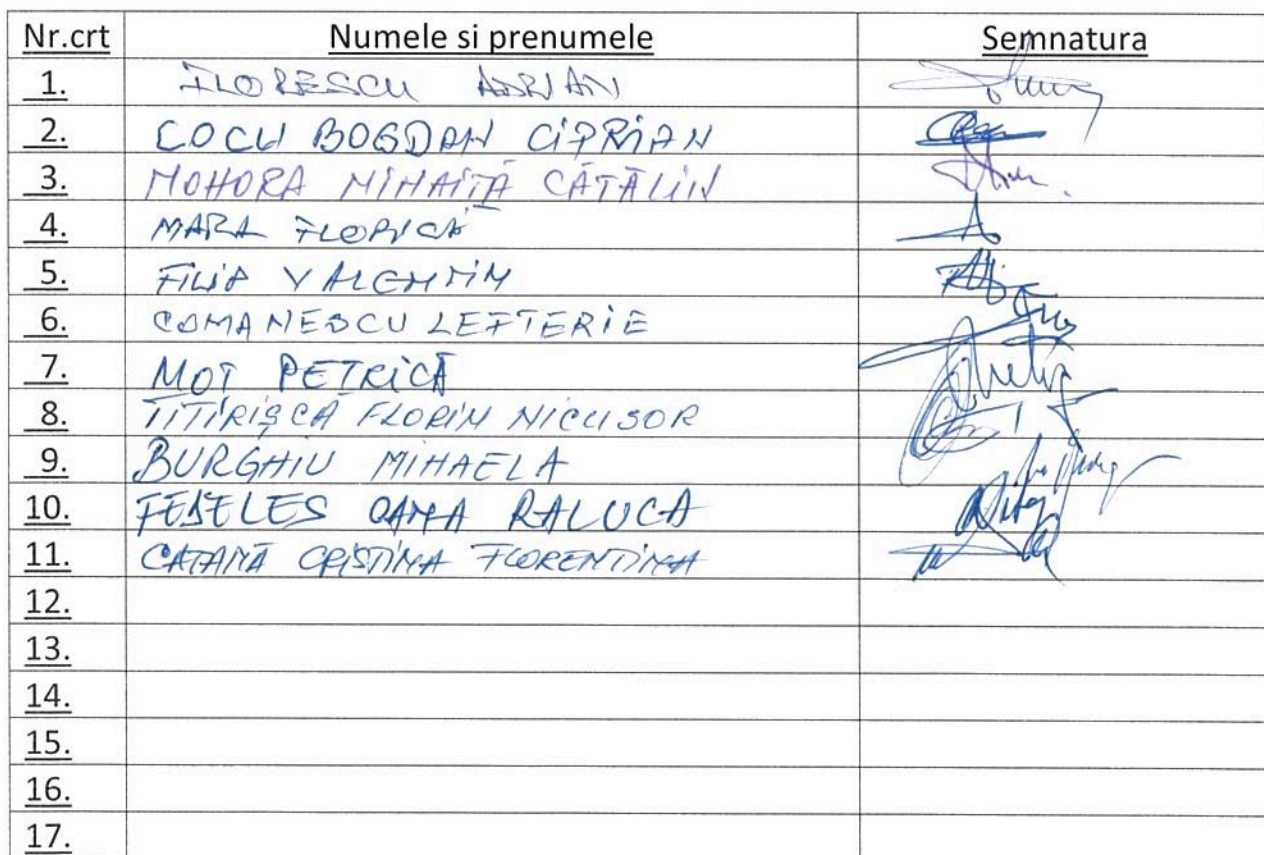 Nr.crt Numele si prenumele Semnatura
1. FLORESCU ADRIAN
2. COCU BOGDAN CIPRIAN
3. MOHORA MIHAIȚĂ CĂTĂLIN
4. MARA FLORICĂ
5. FILIP VALENTIN
6. COMANESCU LEFTERIE
7. MOȚ PETRICĂ
8. TITIRIȘCĂ FLORIN NICUSOR
9. BURGHIU MIHAELA
10. FEȘTELES OANA RALUCA
11. CATANĂ CRISTINA FLORENTINA
12.
13.
14.
15.
16.
17.